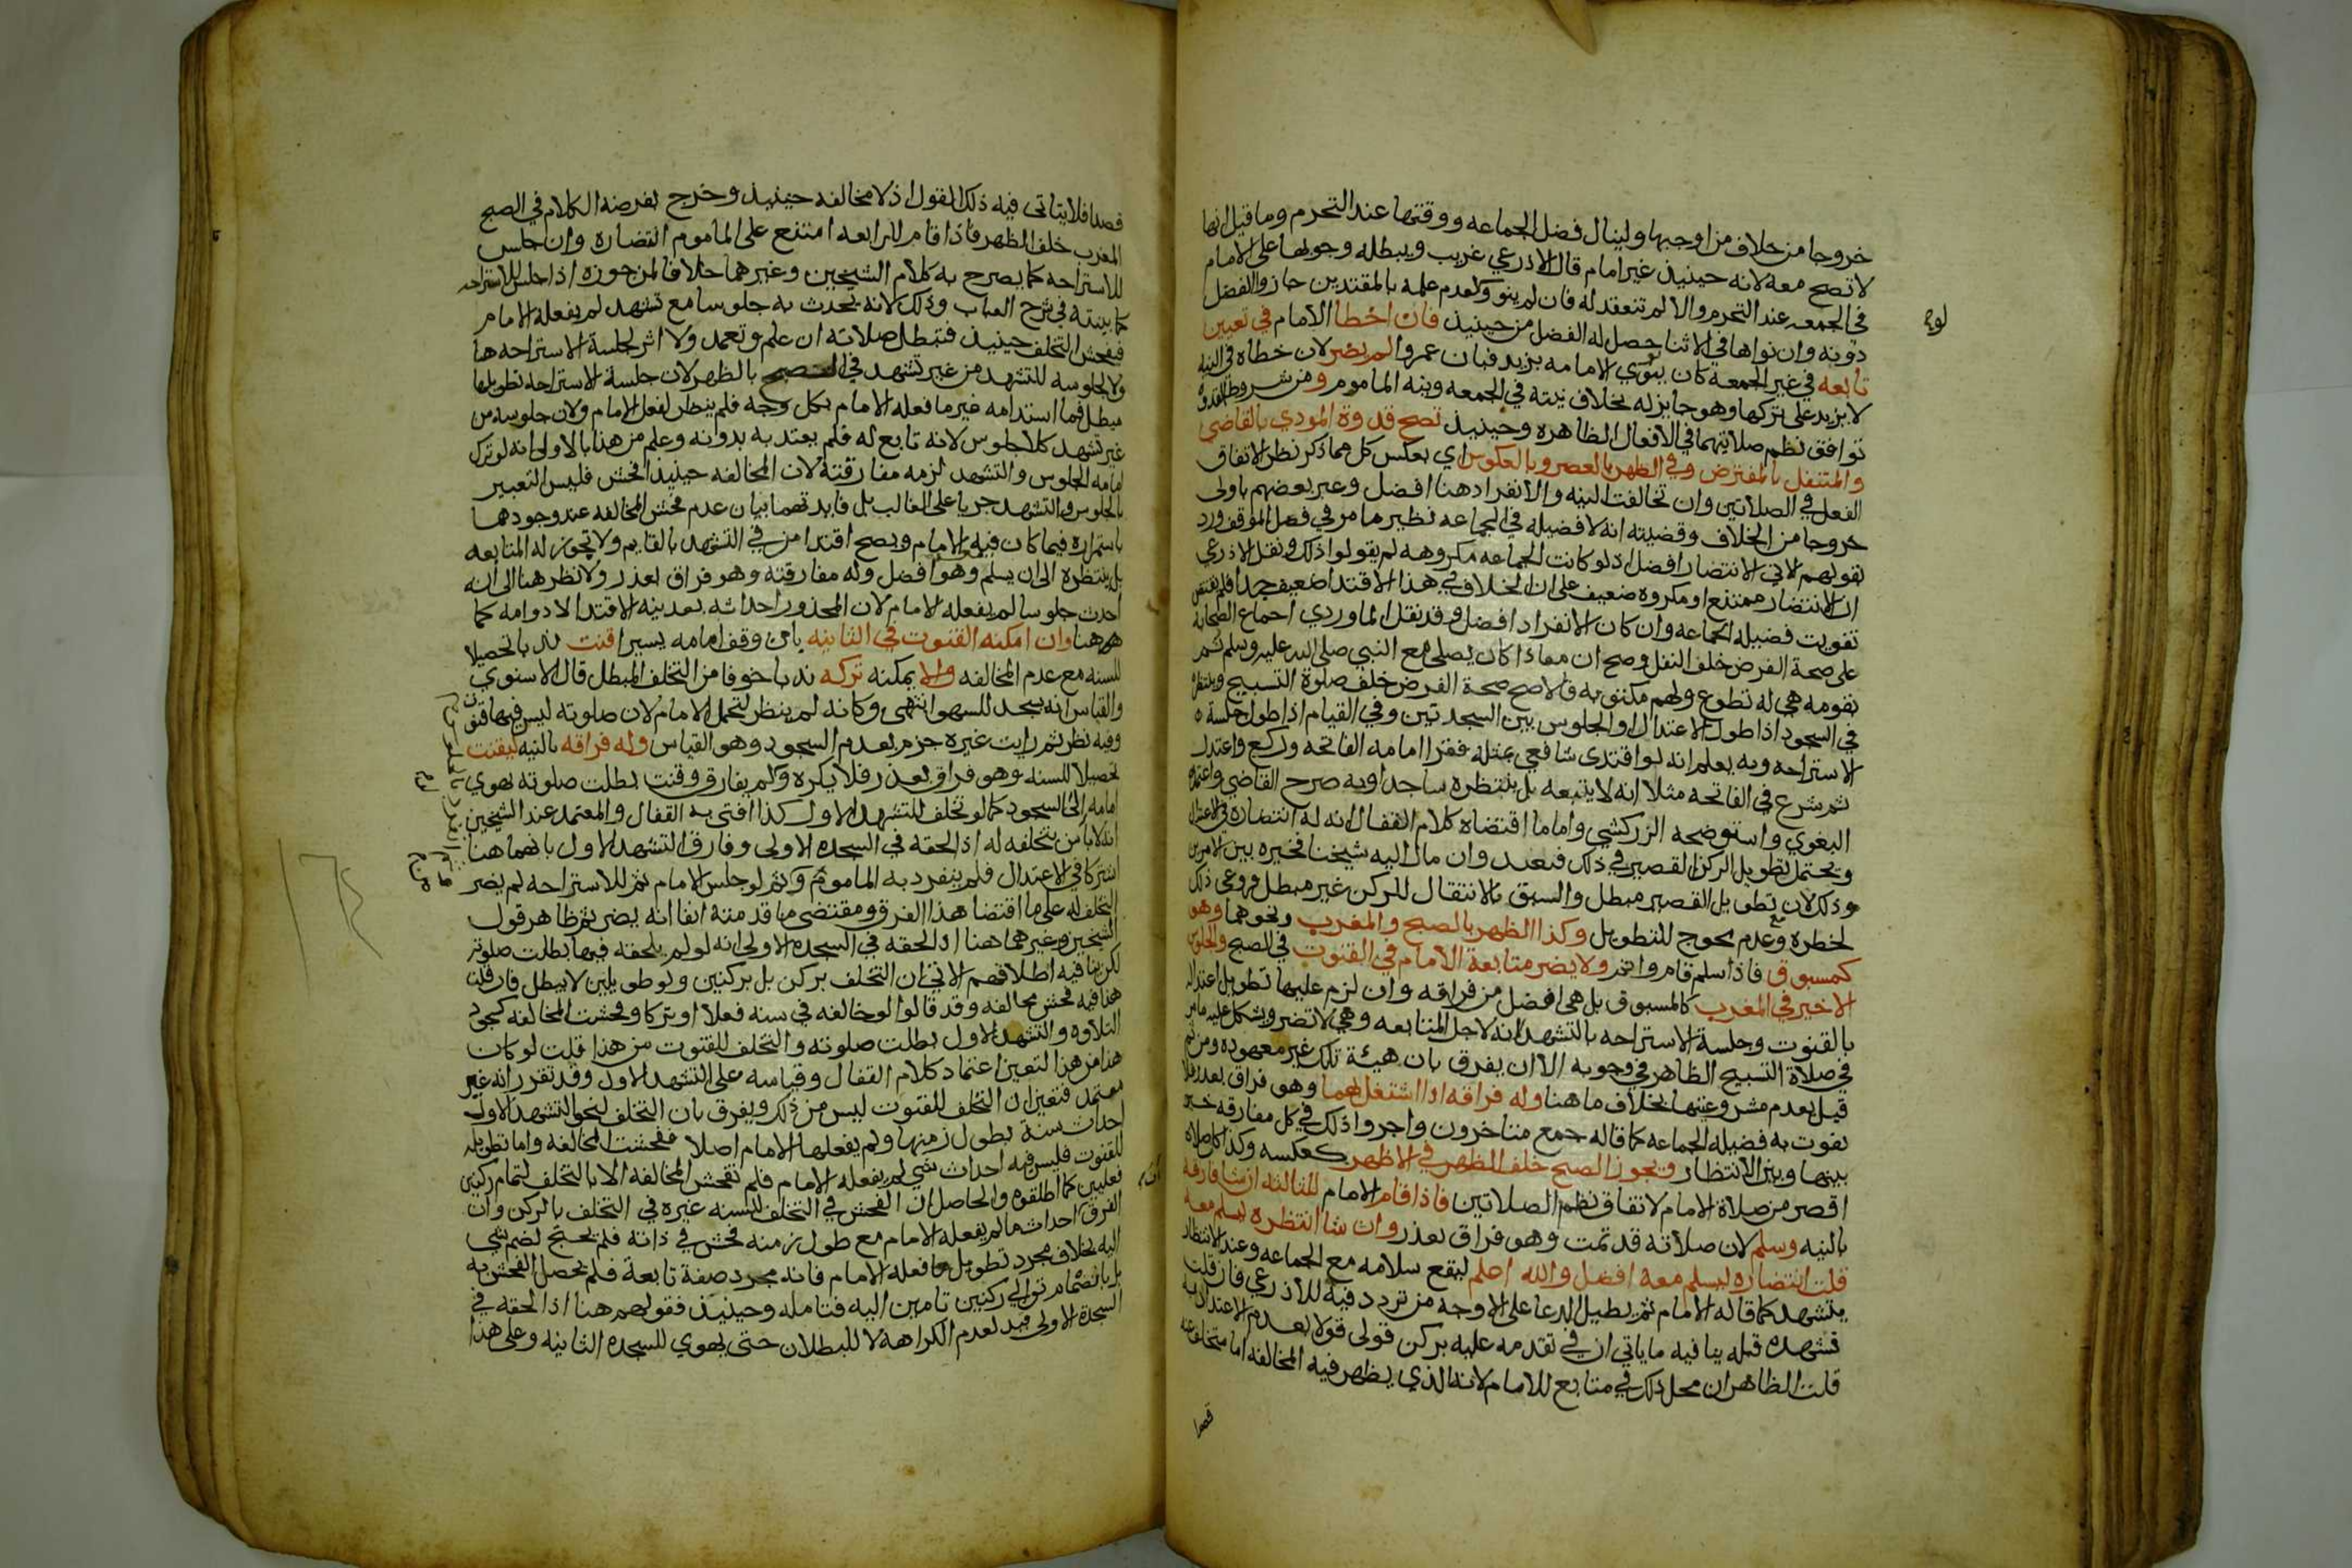 خروجا من خلاف من اوجبها ولينال فضل الجماعه ووقتها عند التحرم وما قيل انها
لا تصح معه لانه حينيذ غير امام قال الاذرعي غريب ويبطله وجوبها على الامام
في الجمعه عند التحرم والا لم تنعقد له فان لم ينو ولعدم علمه بالمقتدين حازوا الفضل
دونه وان نواها في الاثنا حصل له الفضل من حينيذ فان اخطا الامام في تعيين
تابعه في غير الجمعه كان ينوي الامامه بزيد فبان عمروا لم يضر لان خطاه في النيه
لا يزيد على تركها وهو جايز له بخلاف نيته في الجمعه ونية الماموم ومن شروط القدوة
توافق نظم صلاتيهما في الافعال الظاهره وحينيذ تصح قدوة المودي بالقاضي
والمتنفل بالمفترض وفي الظهر بالعصر وبالعكوس اي بعكس كل مما ذكر نظر الاتفاق
الفعل في الصلاتين وان تخالفت النيه والانفراد هنا افضل وعبر بعضهم باولى
خروجا من الخلاف وقضيته انه لا فضيله في الجماعه نظير ما مر في فصل الموقف ورد
بقولهم الاتي الانتضار افضل اذ لو كانت الجماعه مكروهه لم يقولوا ذلك ونقل الاذرعي
ان الانتضار ممتنع او مكروه ضعيف على ان الخلاف في هذا الاقتدا ضعيف جدا فلم يقتض
تفويت فضيله الجماعه وان كان الانفراد افضل وقد نقل الماوردي اجماع الصحابة
على صحة الفرض خلف النفل وصح ان معاذا كان يصلي مع النبي صلى الله عليه وسلم ثم
بقومه هي له تطوع ولهم مكتوبه فالاصح صحة الفرض خلف صلوة التسبيح وينتظره
في السجود اذا طول الاعتدال او الجلوس بين السجدتين وفي القيام اذا طول جلسة
الاستراحه وبه يعلم انه لو اقتدى شافعي بمثله فقرا امامه الفاتحه وركع واعتدل
ثم شرع في الفاتحه مثلا انه لا يتبعه بل ينتظره ساجدا وبه صرح القاضي واعتمده
البغوي واستوضحه الزركشي واما ما اقتضاه كلام القفال انه له انتضاره في الاعتدال
ويحتمل تطويل الركن القصير في ذلك فبعيد وان مال اليه شيخنا فخيره بين الامرين
وذلك لان تطويل القصير مبطل والسبق بالانتقال للركن غير مبطل فروعى ذلك
لخطره مع عدم محوج للتطويل وكذا الظهر بالصبح والمغرب ونحوهما وهو
كمسبوق فاذا سلم قام واتم ولا يضر متابعة الامام في القنوت في الصبح والجلوس
الاخير في المغرب كالمسبوق بل هي افضل من فراقه وان لزم عليها تطويل اعتداله
بالقنوت وجلسة الاستراحه بالتشهد لانه لاجل المتابعه وهي لا تضر ويشكل عليه ما مر
في صلاة التسبيح الظاهر في وجوبه الا ان يفرق بان هيئة تلك غير معهوده ومن ثم
قيل بعدم مشروعيتها بخلاف ما هنا وله فراقه اذا اشتغل بهما وهو فراق بعذر فلا
يفوت به فضيله الجماعه كما قاله جمع متاخرون واجروا ذلك في كل مفارقه خير
بينها وبين الانتظار ويجوز الصبح خلف الظهر في الاظهر كعكسه وكذا كل صلاة
اقصر من صلاة الامام لاتفاق نظم الصلاتين فاذا قام الامام للثالثه ان شا فارقه
بالنيه وسلم لان صلاته قد تمت وهو فراق بعذر وان شا انتظره ليسلم معه
قلت انتضاره ليسلم معه افضل والله اعلم ليقع سلامه مع الجماعه وعند الانتظار
يتشهد كما قاله الامام ثم يطيل الدعا على الاوجه من تردد فيه للاذرعي فان قلت
تشهده قبله ينافيه ما ياتي ان في تقدمه عليه بركن قولي قولا بعدم الاعتداد به
قلت الظاهر ان محل ذلك في متابع للامام لانه الذي يظهر فيه المخالفه اما متخلف عنه
قصدا
قصدا فلا يتاتى فيه ذلك القول اذ لا مخالفه حينيذ وخرج بفرضه الكلام في الصبح
المغرب خلف الظهر فاذا قام للرابعه امتنع على الماموم انتضاره وان جلس
للاستراحه كما يصرح به كلام الشيخين وغيرهما خلافا لمن جوزه اذا جلس للاستراحه
كما بينته في شرح العباب وذلك لانه يحدث به جلوسا مع تشهد لم يفعله الامام
فيفحش التخلف حينيذ فتبطل صلاته ان علم وتعمد ولا اثر لجلسة الاستراحه هنا
ولا لجلوسه للتشهد من غير تشهد في الصبح بالظهر لان جلسة الاستراحه تطويلها
مبطل فما استدامه غير ما فعله الامام بكل وجه فلم ينظر لفعل الامام ولان جلوسه من
غير تشهد كلا جلوس لانه تابع له فلم يعتد به بدونه وعلم من هذا بالاولى انه لو ترك
امامه الجلوس والتشهد لزمه مفارقته لان المخالفه حينيذ افحش فليس التعبير
بالجلوس والتشهد جريا على الغالب بل فايدتهما بيان عدم فحش المخالفه عند وجودهما
باستمراره فيما كان فيه الامام ويصح اقتدا من في التشهد بالقايم ولا تجوز له المتابعه
بل ينتظره الى ان يسلم وهو افضل وله مفارقته وهو فراق بعذر ولا نظر هنا الى انه
احدث جلوسا لم يفعله الامام لان المحذور احداثه بعد نية الاقتدا لا دوامه كما
هو هنا وان امكنه القنوت في الثانيه بان وقف امامه يسيرا قنت ندبا تحصيلا
للسنه مع عدم المخالفه والا يمكنه تركه ندبا خوفا من التخلف المبطل قال الاسنوي
والقياس انه يسجد للسهو انتهى وكانه لم ينظر لتحمل الامام لان صلوته ليس فيها قنوت
وفيه نظر ثم رايت غيره جزم بعدم السجود وهو القياس وله فراقه بالنيه ليقنت
تحصيلا للسنه وهو فراق بعذر فلا يكره ولم يفارق وقنت بطلت صلوته بهوي
امامه الى السجود كما لو تخلف للتشهد الاول كذا افتى به القفال والمعتمد عند الشيخين
انه لا باس بتخلفه له اذا لحقه في السجده الاولى وفارق التشهد الاول بانهما هنا
اشتركا في الاعتدال فلم ينفرد به الماموم وثم لو جلس الامام ثم للاستراحه لم يضر
التخلف له على ما اقتضا هذا الفرق ومقتضى ما قدمته انفا انه يضر ثم ظاهر قول
الشيخين وغيرهما هنا اذا لحقه في السجده الاولى انه لو لم يلحقه فيها بطلت صلوته
لكن ينافيه اطلاقهم الاتي ان التخلف بركن بل بركنين ولو طويلين لا يبطل فان قلت
هنا فيه فحش مخالفه وقد قالوا لو خالفه في سنه فعلا او تركا وفحشت المخالفه كسجود
التلاوه والتشهد الاول بطلت صلوته والتخلف للقنوت من هذا قلت لو كان
هذا من هذا لتعين اعتماد كلام القفال وقياسه على التشهد الاول وقد تقرر انه غير
معتمد فتعين ان التخلف للقنوت ليس من ذلك ويفرق بان التخلف لنحو التشهد الاول
احداث سنة يطول زمنها ولم يفعلها الامام اصلا ففحشت المخالفه واما تطويله
للقنوت فليس فيه احداث شي لم يفعله الامام فلم تفحش المخالفه الا بالتخلف لتمام ركنين
فعليين كما اطلقوه والحاصل ان الفحش في التخلف للسنه غيره في التخلف بالركن وان
الفرق احداث ما لم يفعله الامام مع طول زمنه فحش في ذاته فلم يحتج لضم شي
اليه بخلاف مجرد تطويل ما فعله الامام فانه مجرد صفة تابعة فلم يحصل الفحش به
بل بانضمام توالي ركنين تامين اليه فتامله وحينيذ فقولهم هنا اذا لحقه في
السجدة الاولى قيد لعدم الكراهه لا للبطلان حتى يهوي للسجده الثانيه وعلى هذا